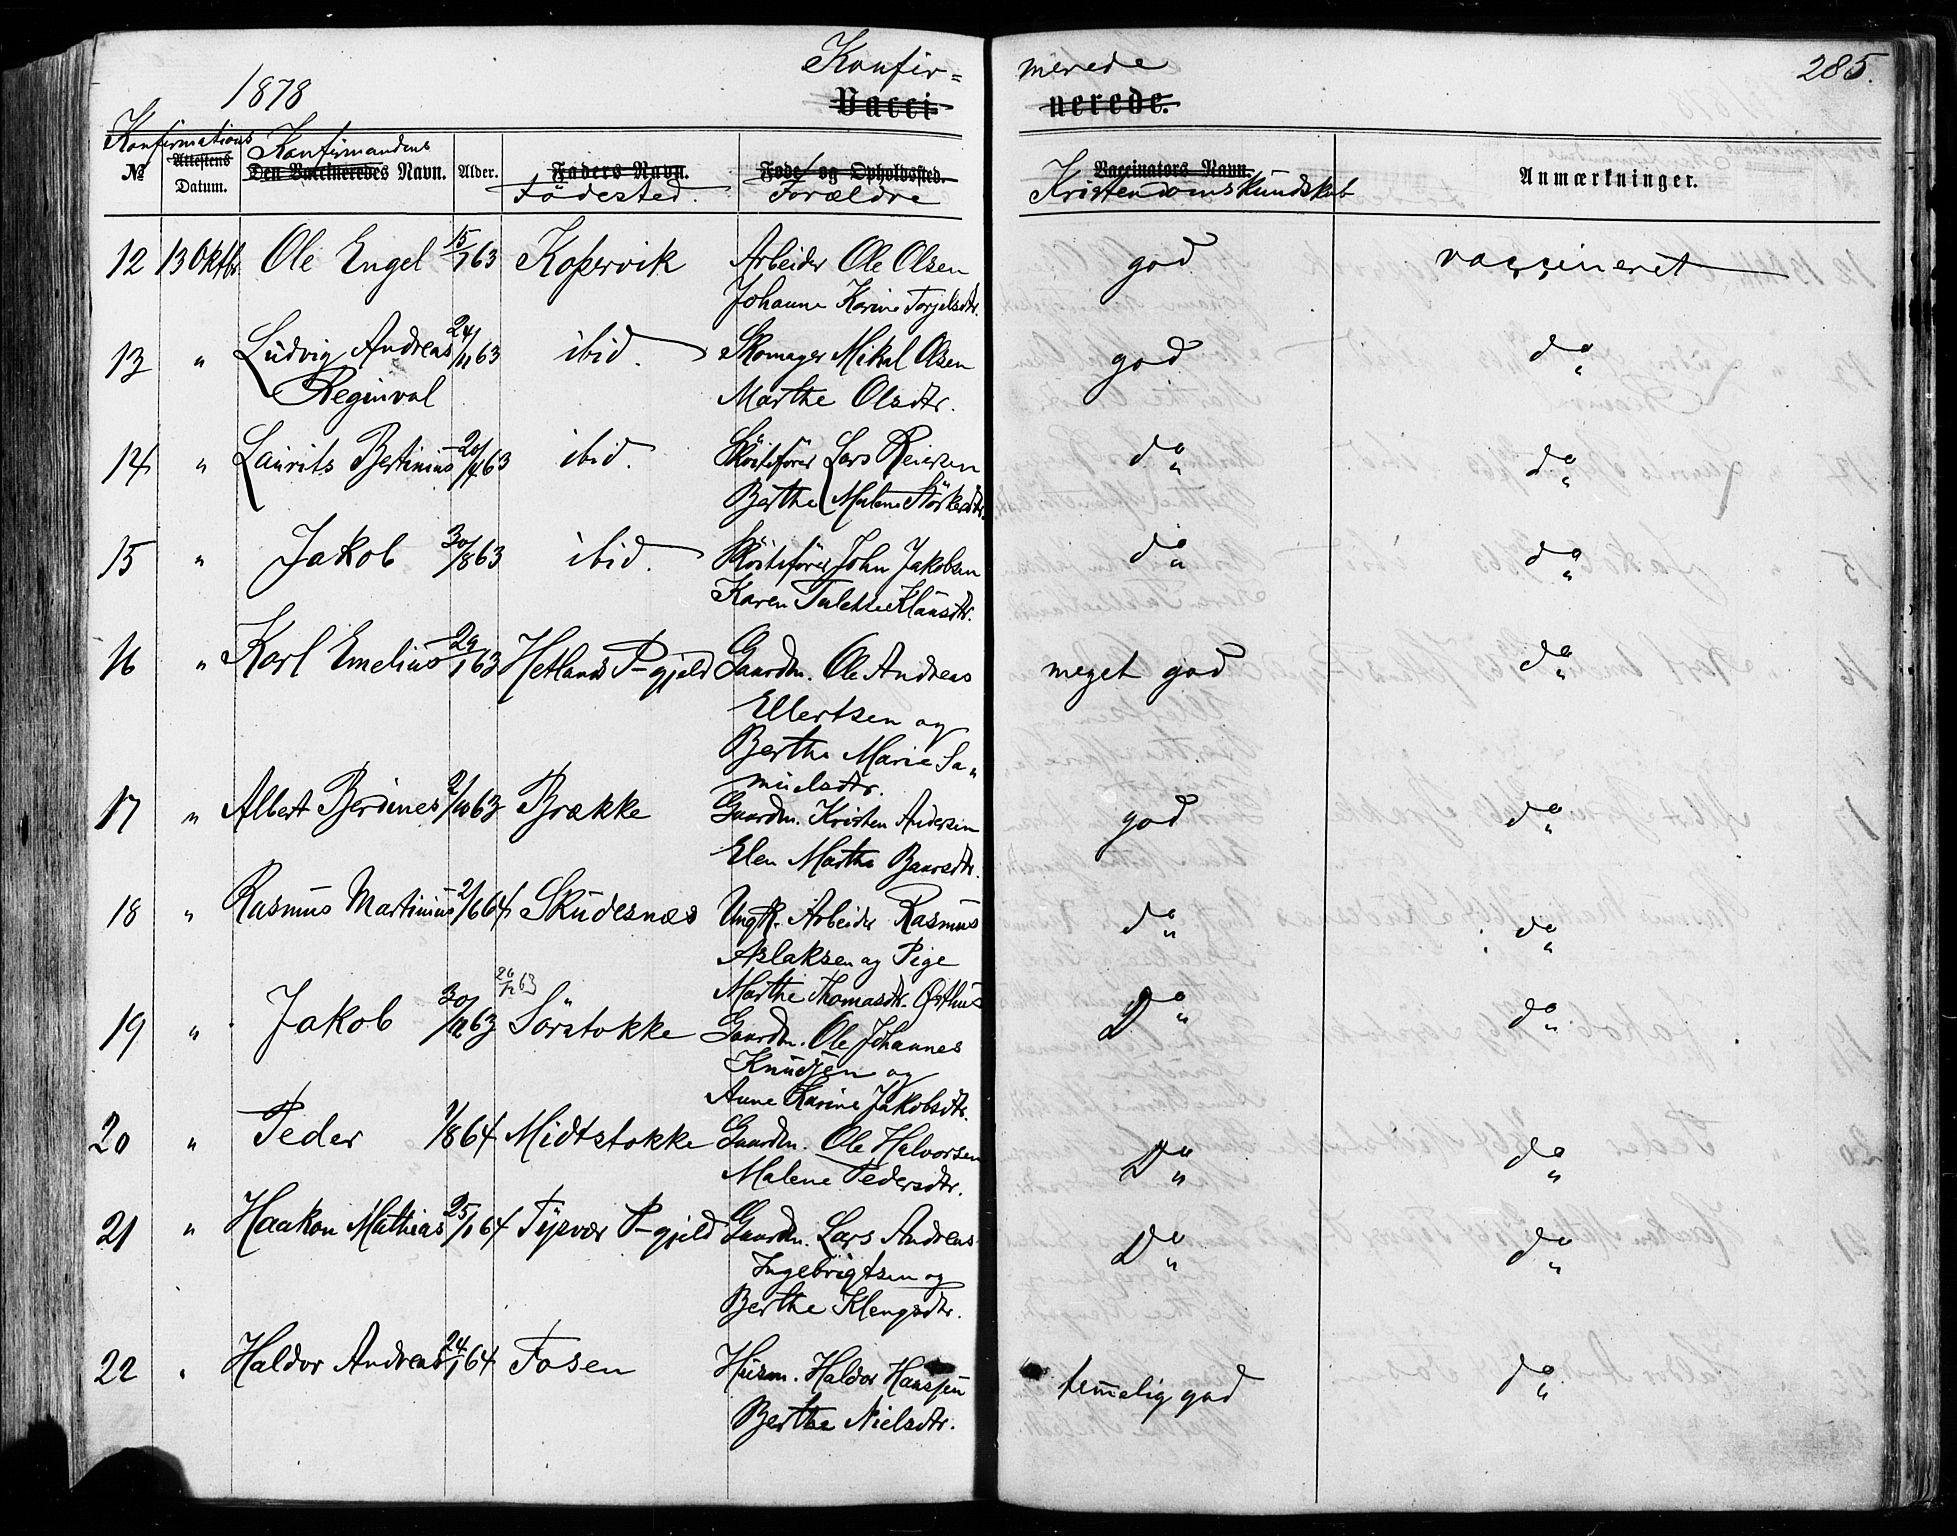 1878 Konfir= merede 285.
Vacci- nerede.
Konfirmations Konfirmandens
№ Attestens Datum. Den Vaccineredes Navn. Alder. Faders Navn. Føde- og Opholdssted. Vaccinators Navn. Anmærkninger.
Födested. Forældre Kristendomskundskab
12 13 Oktbr Ole Engel 15/1 63 Kopervik Arbeider Ole Olsen god vaccineret
Johanne Karine Torjelsdtr.
13 " Ludvig Andreas 24/11 63 ibid. Skomager Mikal Olsen god do "
Reginval Marthe Olsdtr.
14 " Laurits Bertinius 20/4 63 ibid. Sköiteförer Lars Reiersen do " do "
Berthe Malene Störkersdtr.
15 " Jakob 30/8 63 ibid. Sköitefører John Jakobsen do " do "
Karen Talette Klausdtr.
16 " Karl Emelius 29/1 63 Hetlands P-gjeld Gaardm. Ole Andreas meget god do "
Ellertsen og
Berthe Marie Sa-
muelsdtr.
17 " Albert Berdines 2/10 63 Brække Gaardm. Kristen Andersen god do "
Elen Marthe Baarsdtr.
18 " Rasmus Martinius 2/6 64 Skudesnæs Ungk. Arbeider Rasmus do " do "
Aslaksen og Pige
26/12 63 Marthe Thomasdtr. Østhus
19 " Jakob 30/12 63 Sörstokke Gaardm. Ole Johannes Do " do "
Knudsen og
Anne Karine Jakobsdtr.
20 " Peder 1/8 64 Midtstokke Gaardm. Ole Halvorsen Do " do "
Malene Pedersdtr.
21 " Haakon Mathias 25/1 64 Tysvær P-gjeld Gaardm. Lars Andreas Do " do "
Ingebrigtsen og
Berthe Klengsdtr.
22 " Haldor Andreas 24/1 64 Fosen Husm. Haldor Hansen temmelig god do "
Berthe Nielsdtr.